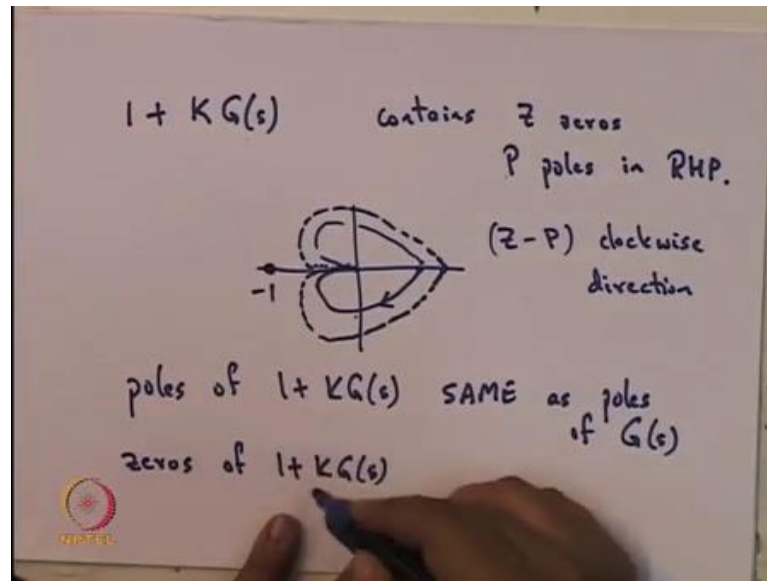 1 + KG(s) contains Z zeros
P poles in RHP.
(Z-P) clockwise
direction
-1
poles of 1+KG(s) SAME as poles
of G(s)
zeros of 1+KG(s)
NPTEL